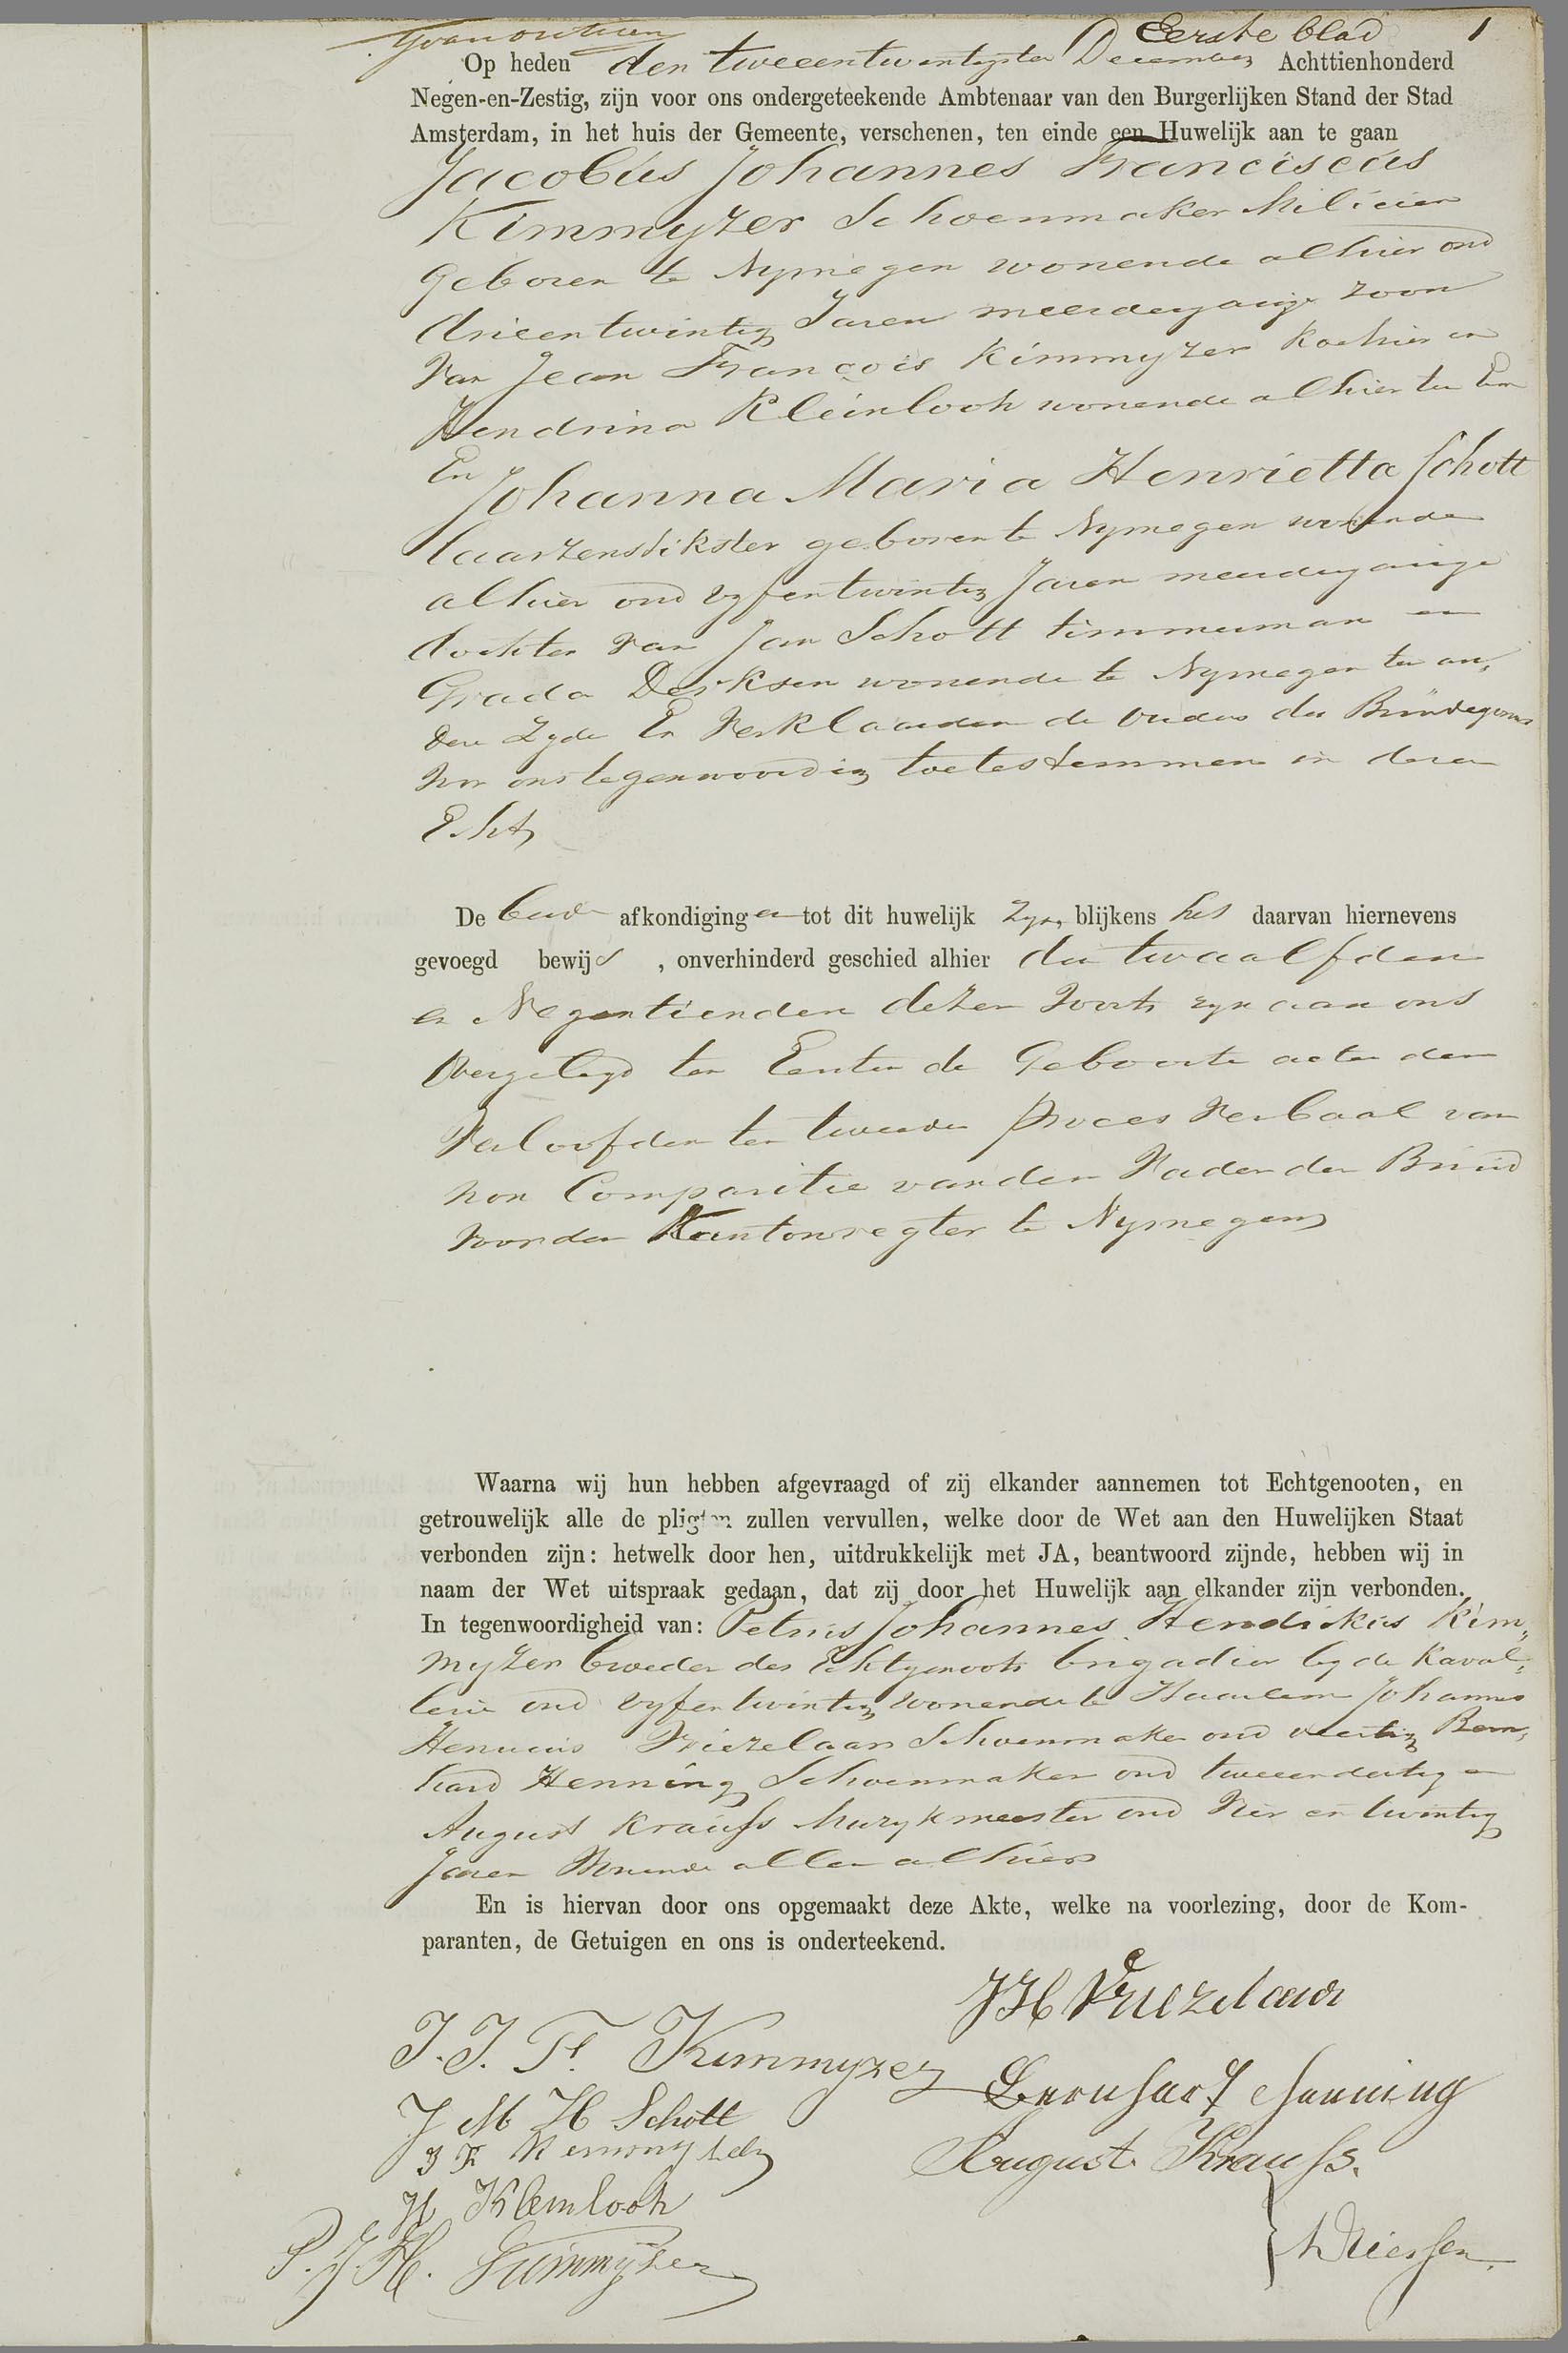 Eerste blad 1
Op heden den tweeentwintigsten December Achttienhonderd
Negen-en-Zestig, zijn voor ons ondergeteekende Ambtenaar van den Burgerlijken Stand der Stad
Amsterdam, in het huis der Gemeente, verschenen, ten einde een Huwelijk aan te gaan
Jacobus Johannes Franciscus
Kimmyzer Schoenmaker Milicien
Geboren te Nymegen wonende alhier oud
drieentwintig Jaren meerderjarige zoon
Van Jean François Kimmyzer en
Hendrina Kleinlooh wonende alhier ter Eenr
En Johanna Maria Henrietta Schott
laarzenstikster geboren te Nymegen wonende
alhier oud vyfentwintig Jaren meerderjarige
dochter van Jan Schott timmerman en
Grada Derksen wonende te Nymegen ter an„
dere Zyde En Verklaarden de Ouders des Bruidegoms
hier ons tegenwoordig toetestemmen in dezen
Echt
De beide afkondiging en tot dit huwelijk Zyn, blijkens het daarvan hiernevens
gevoegd bewijs , onverhinderd geschied alhier den twaalfden
en Negentienden dezer Voorts zyn aan ons
Overgelegd ten Eersten de Geboorte acten der
Verloofden ten tweede Proces Verbaal van
non Comparitie van den Vader der Bruid
voor den Kantonregter te Nymegen
Waarna wij hun hebben afgevraagd of zij elkander aannemen tot Echtgenooten, en
getrouwelijk alle de pligten zullen vervullen, welke door de Wet aan den Huwelijken Staat
verbonden zijn: hetwelk door hen, uitdrukkelijk met JA, beantwoord zijnde, hebben wij in
naam der Wet uitspraak gedaan, dat zij door het Huwelijk aan elkander zijn verbonden.
In tegenwoordigheid van: Petrus Johannes Hendrikus Kim„
myzer broeder des Echtgenoots brigadier by de Kaval„
lerie oud vyfentwintig wonende te Haarlem Johannes
Henricus Friezelaar Schoenmaker oud veertig Bern„
hard Henning Schoenmaker oud tweeendertig en
August Krauss Muzykmeester oud Vier en twintig
Jaren Wonende allen alhier
En is hiervan door ons opgemaakt deze Akte, welke na voorlezing, door de Kom-
paranten, de Getuigen en ons is onderteekend.
JH Friezelaar
J. J. F. Kimmyzer
Bernhart Henning
J M H Schott
J F Kemmyzer
August Krauss.
H Kleinlooh
P. J. H. Kimmijzer